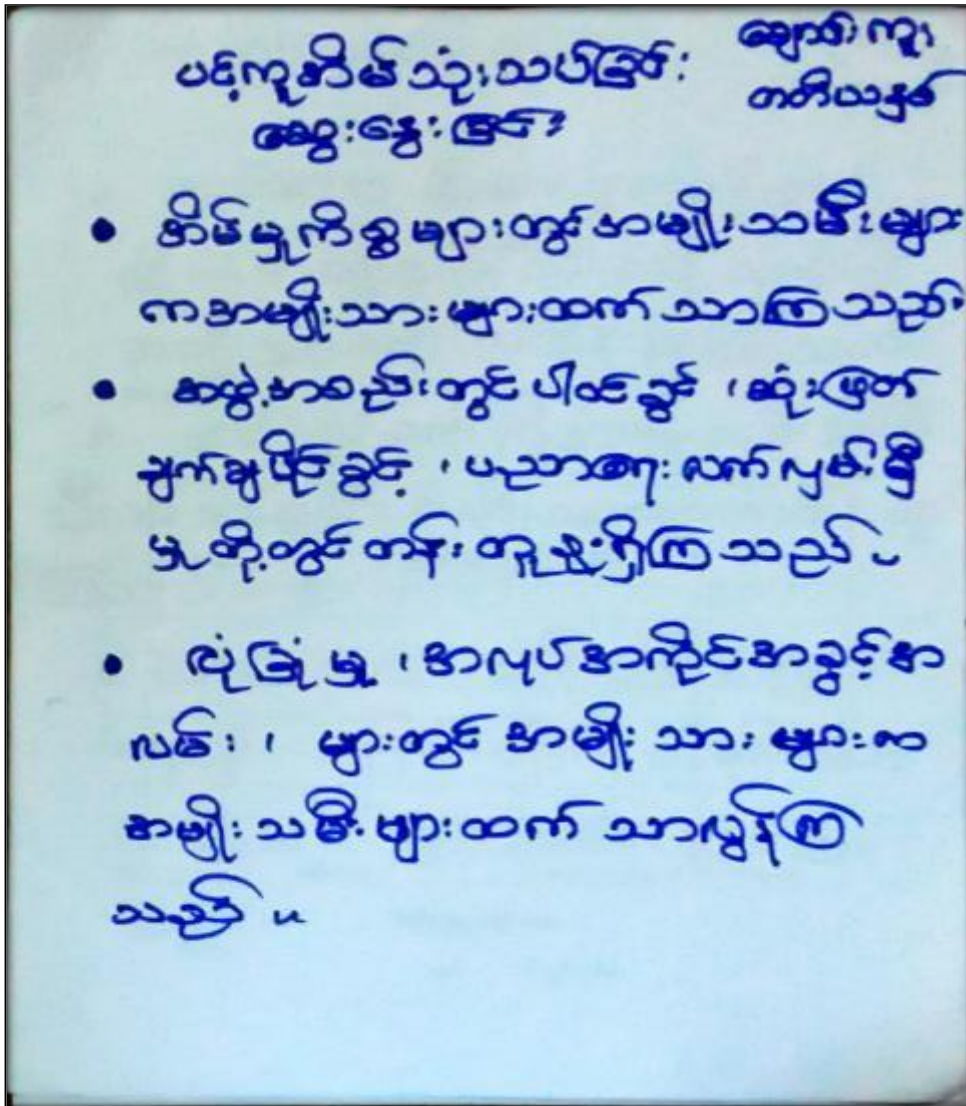 ချောင်းကူး
ပင့်ကူအိမ်သုံးသပ်ခြင်း
တတိယနှစ်
ဆွေးနွေးခြင်း
• အိမ်မှုကိစ္စများတွင်အမျိုးသမီးများ
ကအမျိုးသားများထက်သာကြသည်။
• အဖွဲ့အစည်းတွင်ပါဝင်ခွင့်၊ဆုံးဖြတ်
ချက်ချပိုင်ခွင့်၊ပညာရေးလက်လှမ်းမှီ
မှုတို့တွင်တန်းတူ ရှိကြသည်။
• လုံခြုံမှု၊အလုပ်အကိုင်အခွင့်အ
လမ်း၊ များတွင်အမျိုးသားများက
အမျိုးသမီးများထက်သာလွန်ကြ
သည်။